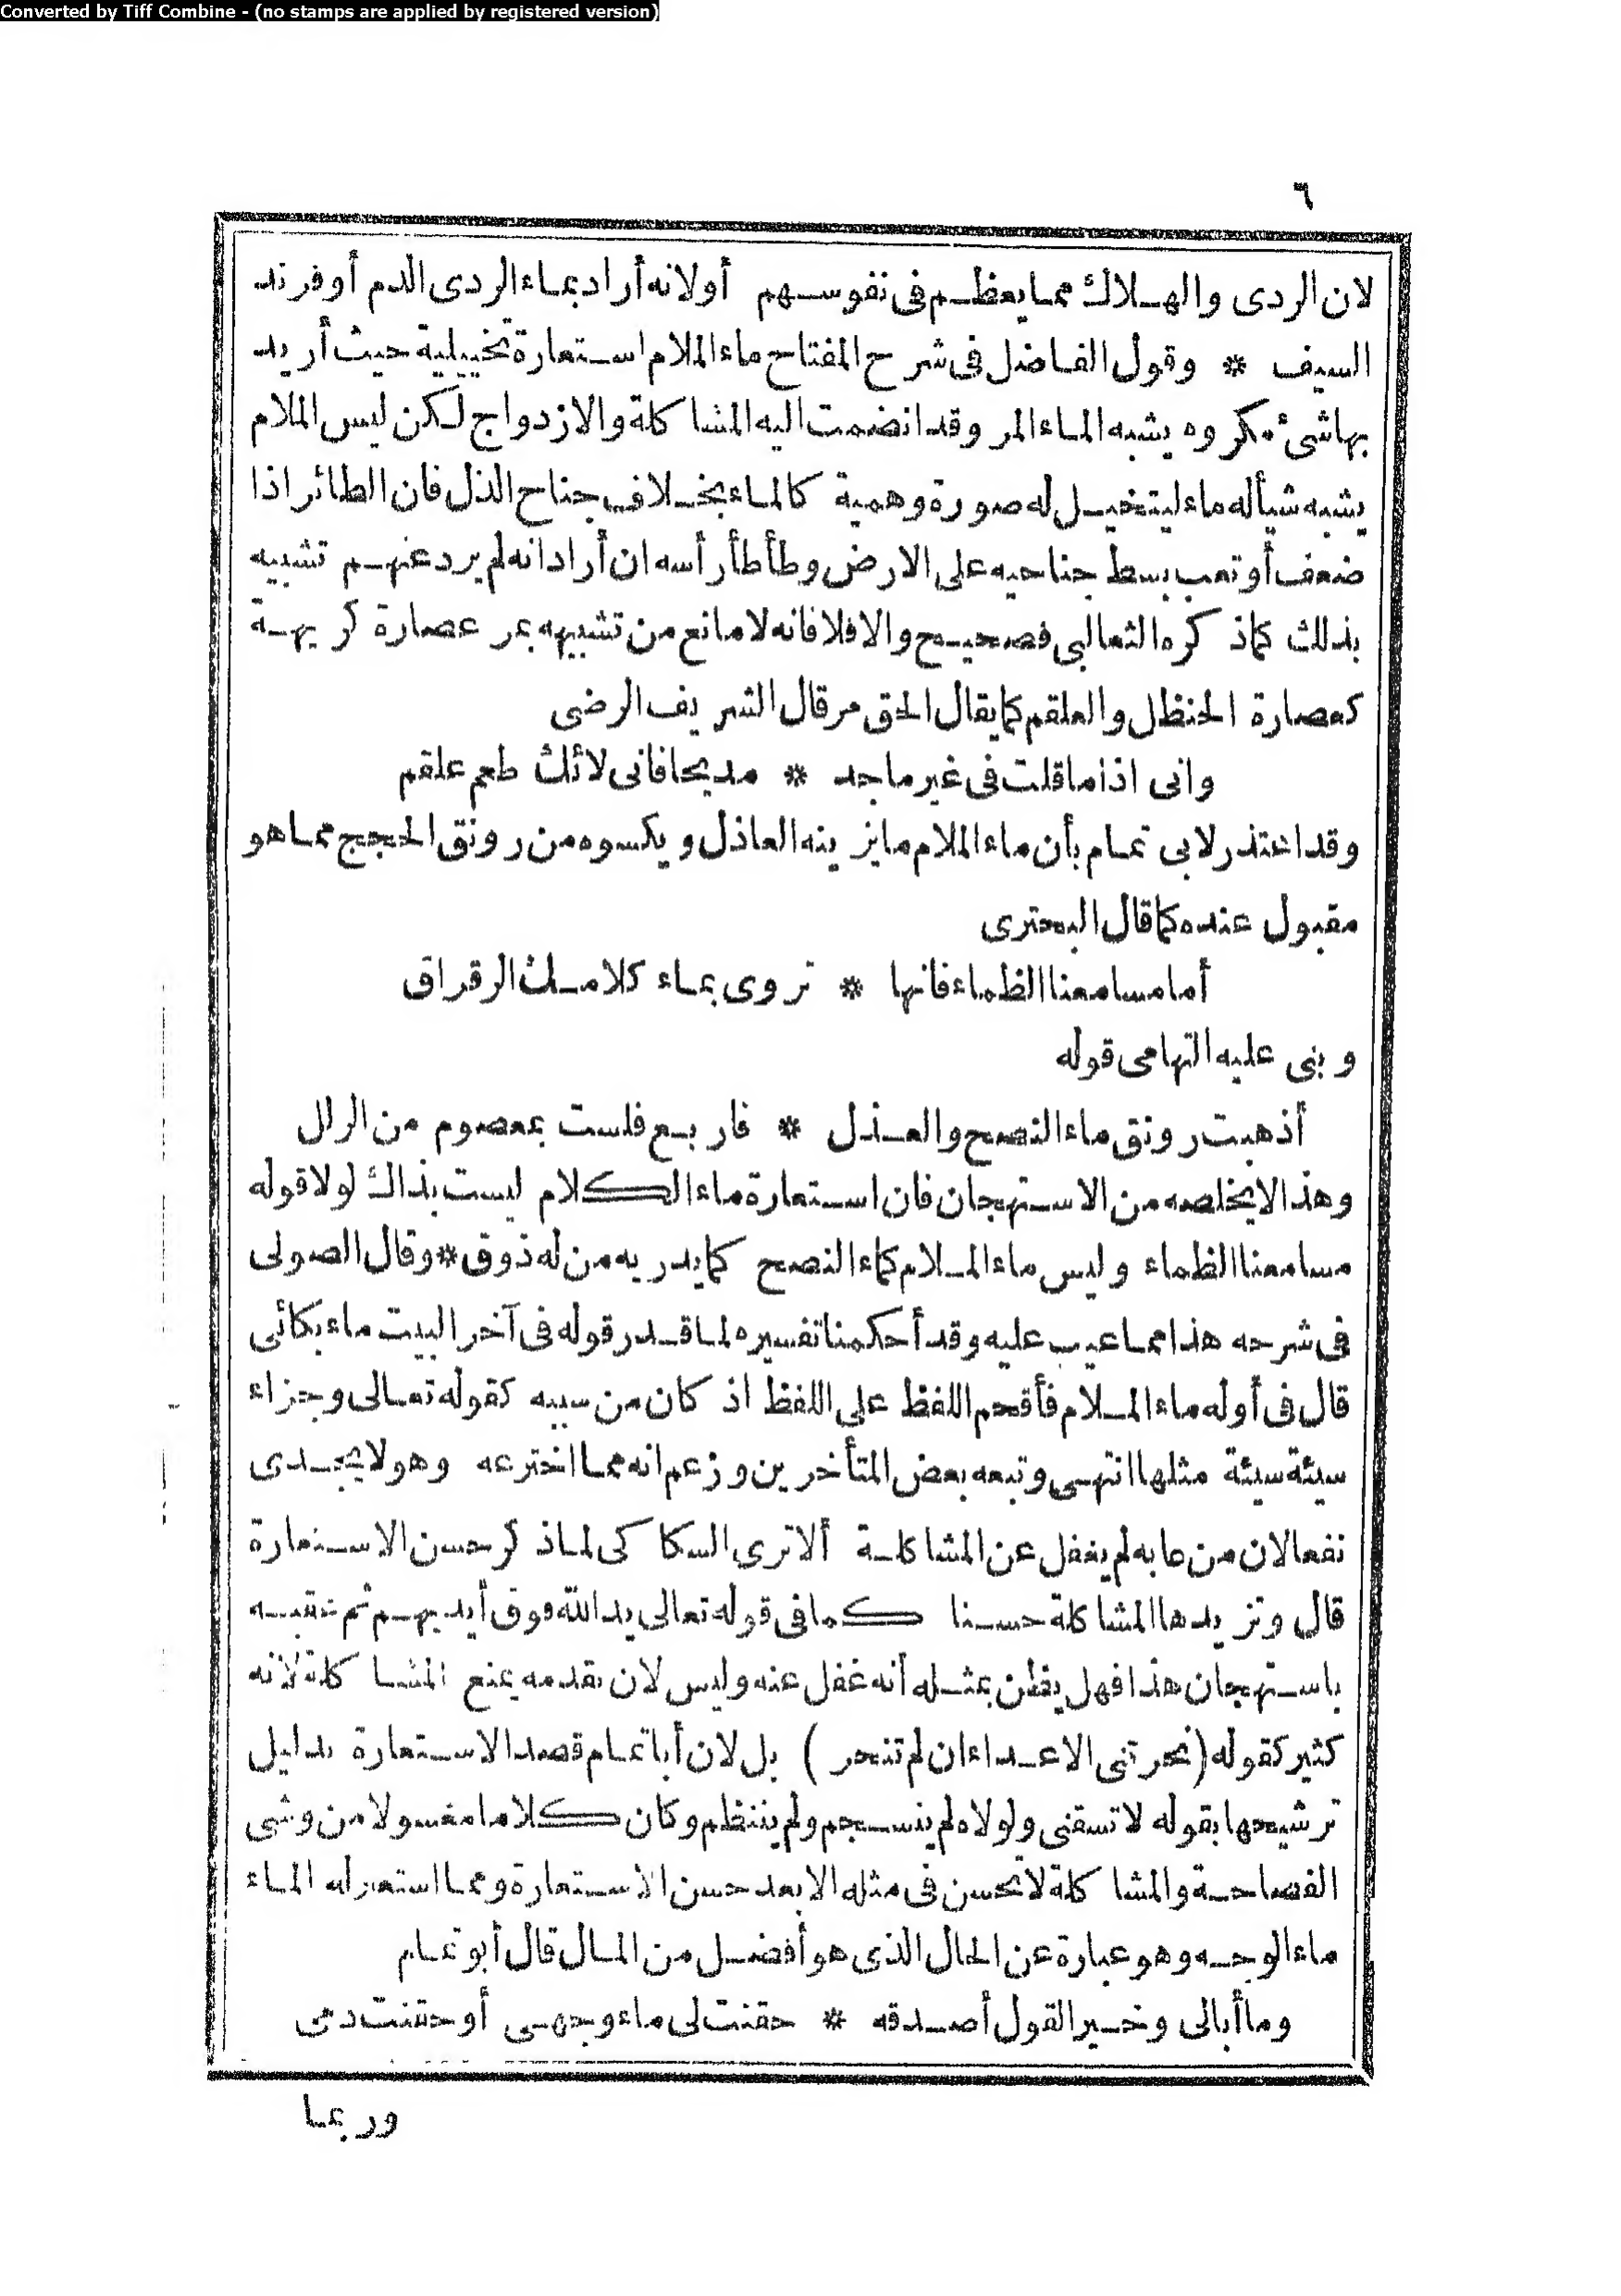 Converted by Tiff Combine - (no stamps are applied by registered version)
٦
لان الردى والهلاك مما يعظم فى نفوسهم أولانه أراد بماء الردى الدم أو فرند
السيف * وقول الفاضل فى شرح المفتاح ماء الملام استعارة تخييلية حيث أريد
بهاشئ مكروه يشبه الماء المر وقد انضمت اليه المشاكلة والازدواج لكن ليس الملام
يشبه شيأله ماء ليتخيل له صورة وهمية كالماء بخلاف جناح الذل فان الطائر اذا
ضعف أو تعب بسط جناحيه على الارض وطأطأ رأسه ان أراد انه لم يرد عنهم تشبيه
بذلك كماذكره الثعالبى فصحيح والا فلا فانه لا مانع من تشبيهه بمر عصارة كريهة
كعصارة الحنظل والعلقم كما يقال الحق مر قال الشريف الرضى
وانى اذا ما قلت فى غير ماجد * مديحا فانى لائك طعم علقم
وقد اعتذر لابى تمام بأن ماء الملام ما يزينه العاذل ويكسوه من رونق الحجج مما هو
مقبول عنده كما قال البحترى
أما مسامعنا الظماء فانها * تروى بماء كلامك الرقراق
وبنى عليه التهامى قوله
أذهبت رونق ماء النصح والعذل * فاربع فلست بمعصوم من الزلل
وهذا لا يخلصه من الاستهجان فان استعارة ماء الكلام ليست بذاك لولا قوله
مسامعنا الظماء وليس ماء الملام كماء النصح كما يدريه من له ذوق * وقال الصولى
فى شرحه هذا مما عيب عليه وقد أحكمنا تفسيره لما قدر قوله فى آخر البيت ماء بكائى
قال فى أوله ماء الملام فأقحم اللفظ على اللفظ اذ كان من سببه كقوله تعالى وجزاء
سيئة سيئة مثلها انتهى وتبعه بعض المتأخرين وزعم انه مما اخترعه وهو لا يجدى
نفعا لان من عابه لم يغفل عن المشاكلة ألا ترى السكاكى لماذكر حسن الاستعارة
قال وتزيدها المشاكلة حسنا كما فى قوله تعالى يد الله فوق أيديهم ثم عقبه
باستهجان هذا فهل يظن بمثله أنه غفل عنه وليس لان تقدمه يمنع المشاكلة لانه
كثير كقوله (نحرتنى الاعداء ان لم تنحر) بل لان أبا تمام قصد الاستعارة بدليل
ترشيحها بقوله لا تسقنى ولولاه لم ينسجم ولم ينتظم وكان كلاما مغسولا من وشى
الفصاحة والمشاكلة لا تحسن فى مثله الا بعد حسن الاستعارة ومما استعير له الماء
ماء الوجه وهو عبارة عن الحال الذى هو أفضل من المال قال أبو تمام
وما أبالى وخير القول أصدقه * حقنت لى ماء وجهى أو حقنت دمى
وربما